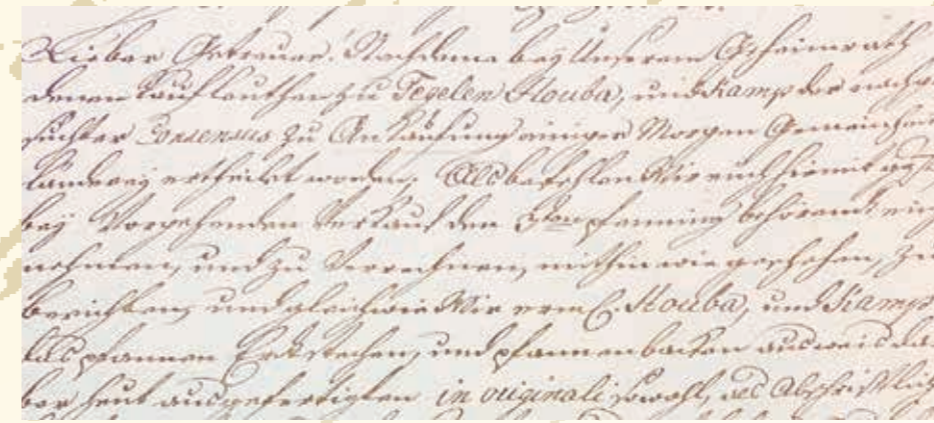 Lieber Getreuer! Nachdeme beÿ Unserem Geheimrath
denen Kauf leuthen zu Tegelen Houba, und Kamp der nachge
suchter Consensus zu Ankaufung einiger Morgen Gemeinheit
länderey ertheilet worden; Als befehlen Wir euch hiemit
bey Vorgehenden Verkauf den pfenning behörend ein
nehmen, und zu Verrechnen, mithin wie geschehen, zu
berichten, und gleichwie Wir Houba, und Kamps
pfannen Erdstechen, und pfannenbacken
heut ausgefertigten in originali sowohl, als Abschriftlich